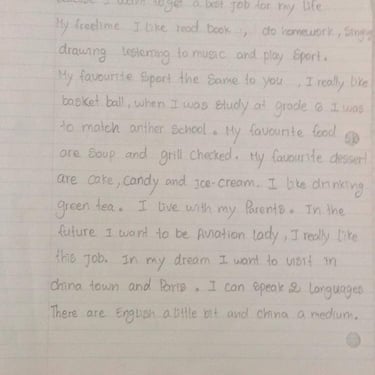 I want to get a best job for my life
My freetime I like read book, do homework, Singing
drawing Lestening to music and play Sport.
My favourite Sport the Same to you, I really like
basket ball, when I was study at grade 6 I was
to match anther School. My favourite food
are Soup and grill checked. My favourite dessert
are cake, candy and Ice-cream. I like drinking
green tea. I live with my Parents. In the
future I want to be Aviation Lady, I really like
this job. In my dream I want to visit in
china town and Paris. I can Speak 2 Languages
There are English a little bit and china a medium.